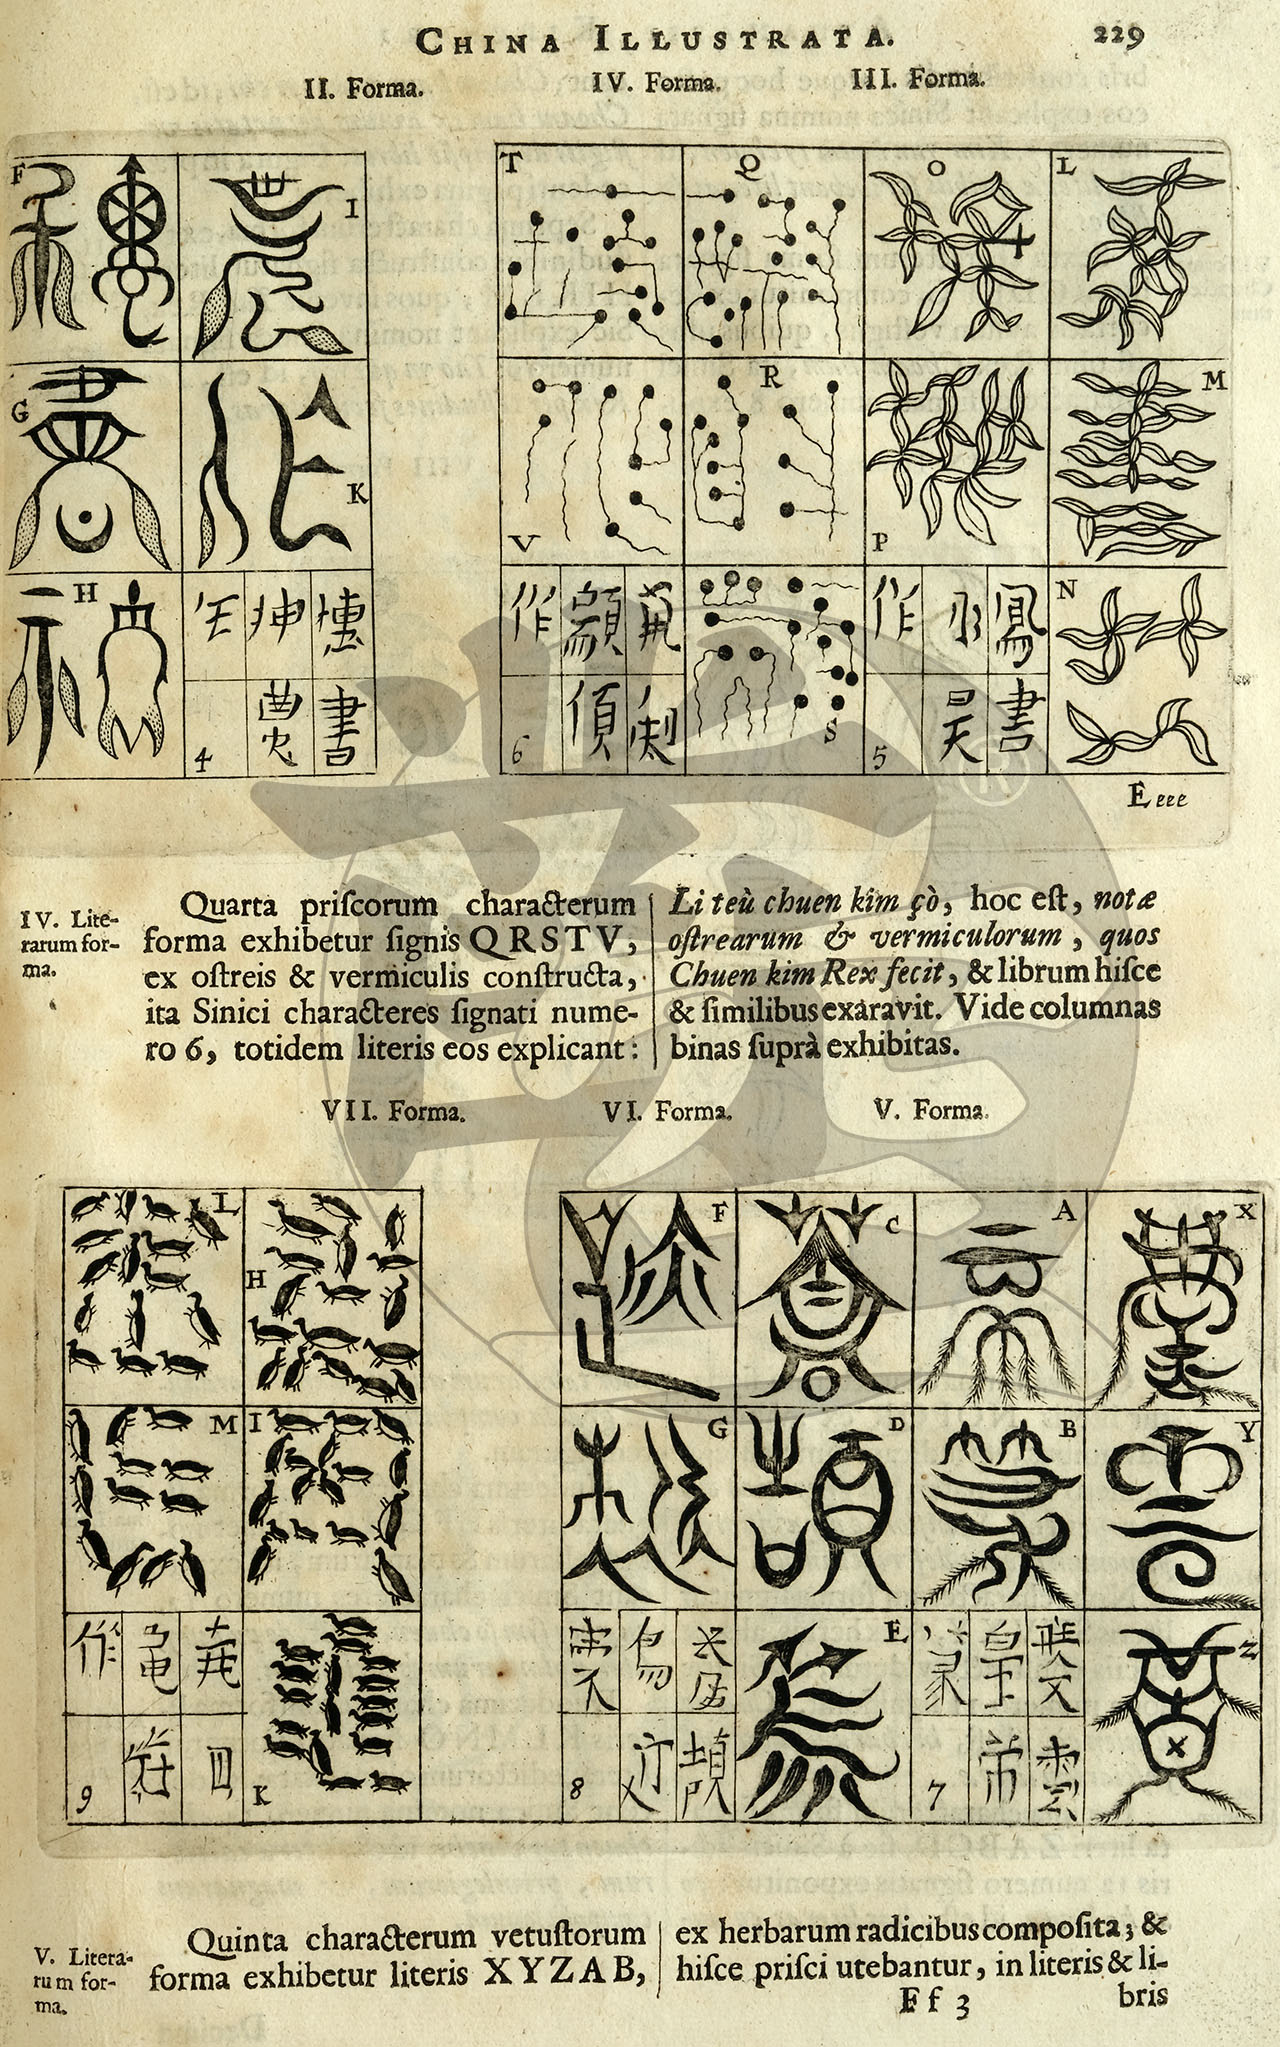 CHINA ILLUSTRATA. 229
II. Forma. IV. Forma. III. Forma.
F I T Q O L
G K V R P M
H S N
4 書
6 作
5 作 鳳
吴 書
E eee
IV. Lite-
rarum for-
ma.
Quarta priſcorum characterum
forma exhibetur ſignis QRSTV,
ex oſtreis & vermiculis conſtructa,
ita Sinici characteres ſignati nume-
ro 6, totidem literis eos explicant:
Li teù chuen kim çò, hoc eſt, notæ
oſtrearum & vermiculorum, quos
Chuen kim Rex fecit, & librum hiſce
& ſimilibus exaravit. Vide columnas
binas ſuprà exhibitas.
VII. Forma. VI. Forma. V. Forma.
L H F C A X
M I G D B Y
K E Z
9 作
8
7 皇
雲
V. Litera-
rum for-
ma.
Quinta characterum vetuſtorum
forma exhibetur literis XYZAB,
ex herbarum radicibus compoſita; &
hiſce priſci utebantur, in literis & li-
Ff 3 bris